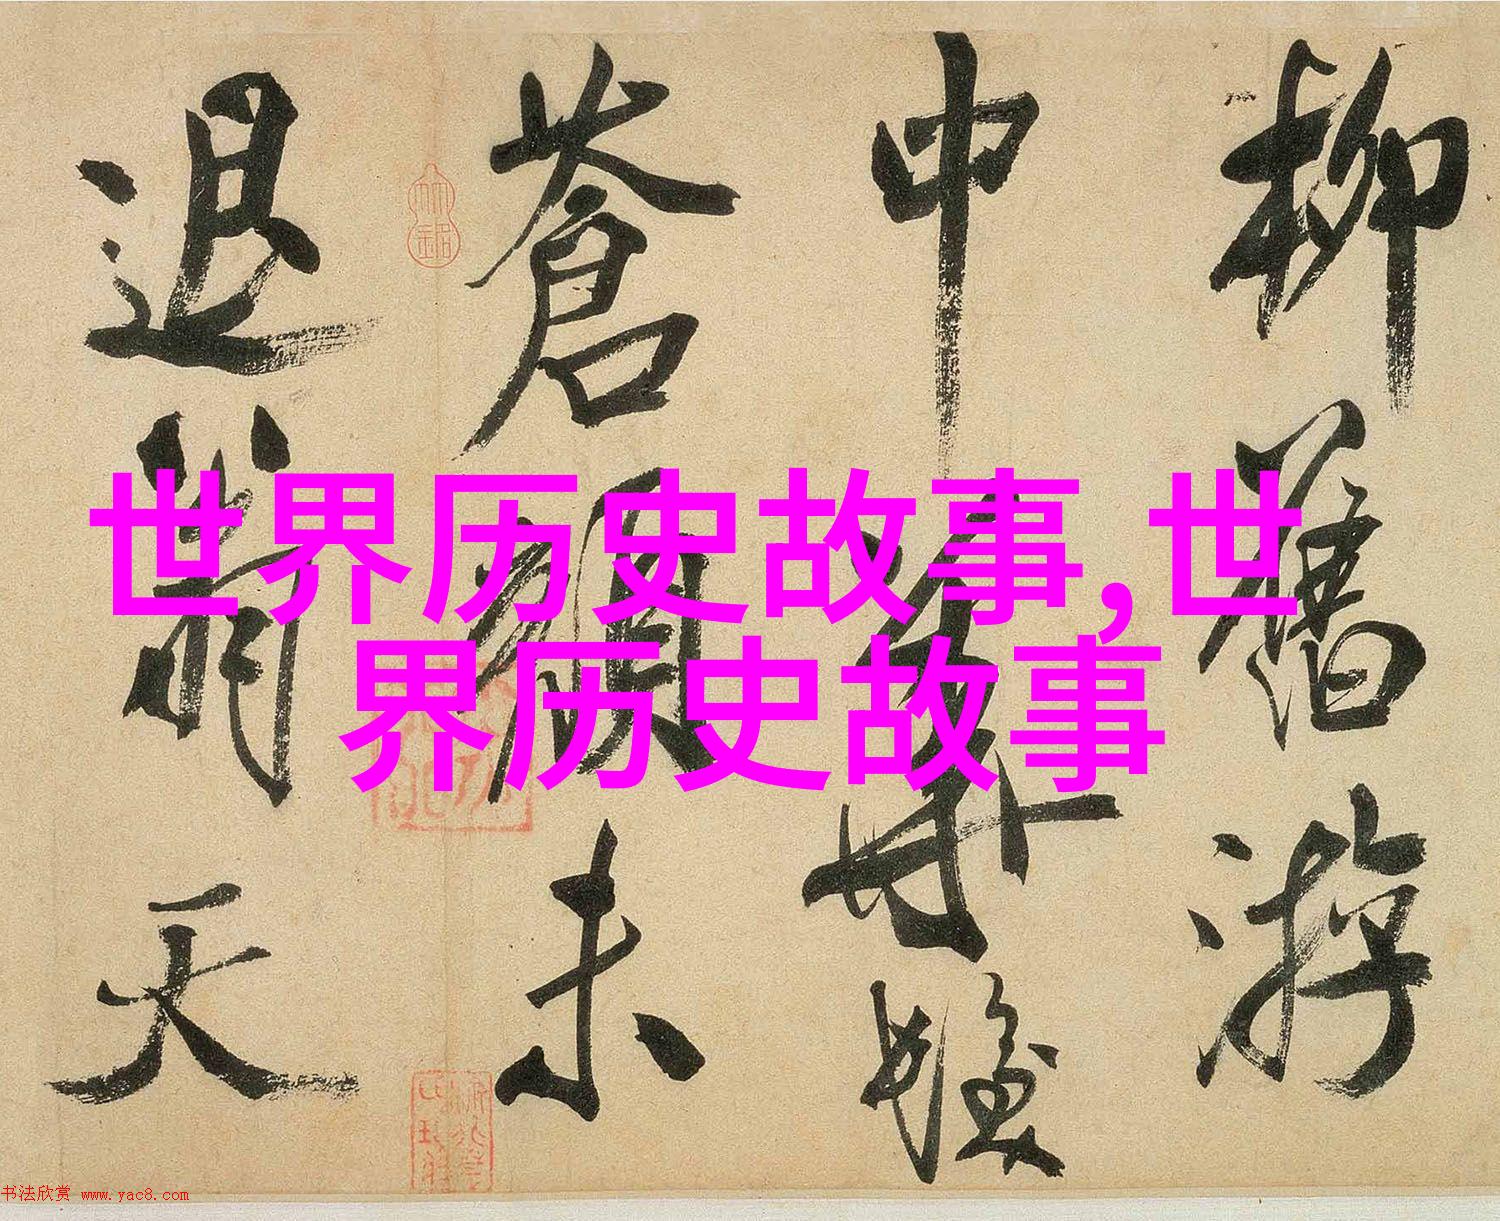 柳舊游
中
蒼顏未
退翁天
世界历史故事,世
界历史故事
书法欣赏 www.yac8.com